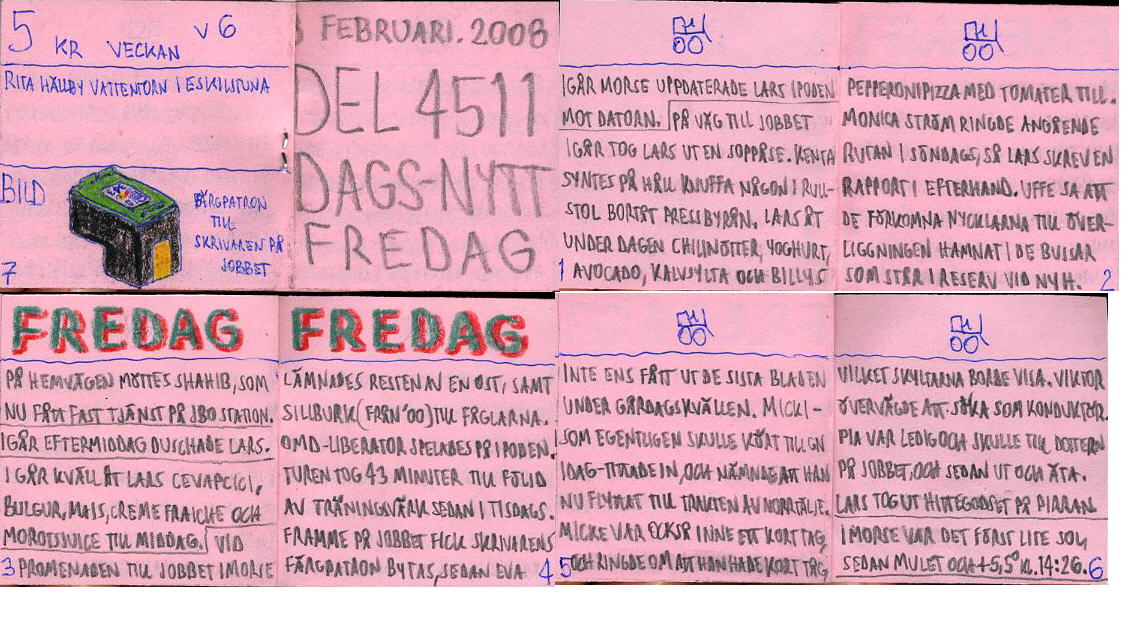 5 KR VECKAN V6
RITA HÄLLBY VATTENTORN I ESKILSTUNA
BILD
FÄRGPATRON
TILL
SKRIVAREN PÅ
JOBBET
7
8 FEBRUARI. 2008
DEL 4511
DAGS-NYTT
FREDAG
IGÅR MORSE UPPDATERADE LARS IPODEN
MOT DATORN. PÅ VÄG TILL JOBBET
IGÅR TOG LARS UT EN SOPPÅSE. KENTA
SYNTES PÅ HÅLL KNUFFA NÅGON I RULL-
STOL BORTÅT PRESSBYRÅN. LARS ÅT
UNDER DAGEN CHILINÖTTER, YOGHURT,
1 AVOCADO, KALVSYLTA OCH BILLYS
PEPPERONIPIZZA MED TOMATER TILL.
MONICA STRÖM RINGDE ANGÅENDE
RUTAN I SÖNDAGS, SÅ LARS SKREV EN
RAPPORT I EFTERHAND. UFFE SA ATT
DE FÖRKOMNA NYCKLARNA TILL ÖVER-
LIGGNINGEN HAMNAT I DE BUSSAR
SOM STÅR I RESERV VID NYH. 2
FREDAG
PÅ HEMVÄGEN MÖTTES SHAHIB, SOM
NU FÅTT FAST TJÄNST PÅ JBO STATION.
IGÅR EFTERMIDDAG DUSCHADE LARS.
I GÅR KVÄLL ÅT LARS CEVAPCICI,
BULGUR, MAJS, CREME FRAICHE OCH
MOROTSJUICE TILL MIDDAG. VID
3 PROMENADEN TILL JOBBET IMORSE
FREDAG
LÄMNADES RESTEN AV EN OST, SAMT
SILLBURK (FRÅN '00) TILL FÅGLARNA.
OMD-LIBERATOR SPELADES PÅ IPODEN.
TUREN TOG 43 MINUTER TILL FÖLJD
AV TRÄNINGSVÄRK SEDAN I TISDAGS.
FRAMME PÅ JOBBET FICK SKRIVARENS
FÄRGPATRON BYTAS, SEDAN EVA 4
INTE ENS FÅTT UT DE SISTA BLADEN
UNDER GÅRDAGSKVÄLLEN. MICKI-
SOM EGENTLIGEN SKULLE KÖRT TILL GN
IDAG-TITTADE IN, OCH NÄMNDE ATT HAN
NU FLYTTAT TILL TRAKTEN AV NORRTÄLJE.
MICKE VAR OCKSÅ INNE ETT KORT TAG,
5 OCH RINGDE OM ATT HAN HADE KORT TÅG,
VILKET SKYLTARNA BORDE VISA. VIKTOR
ÖVERVÄGDE ATT SÖKA SOM KONDUKTÖR.
PIA VAR LEDIG OCH SKULLE TILL DOTTERN
PÅ JOBBET, OCH SEDAN UT OCH ÄTA.
LARS TOG UT HITTEGODSET PÅ PIRRAN.
I MORSE VAR DET FÖRST LITE SOL,
SEDAN MULET OCH +5,5° KL. 14:26. 6